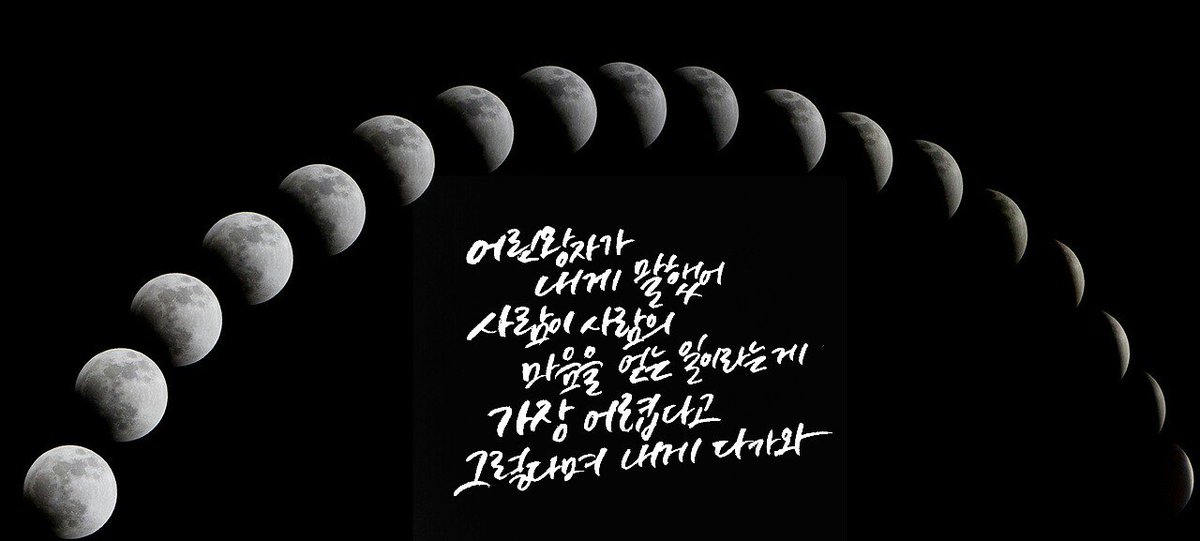 어린왕자가
내게 말했어
사람이 사람의
마음을 얻는 일이라는게
가장 어렵다고
그렇다며 내게 다가와